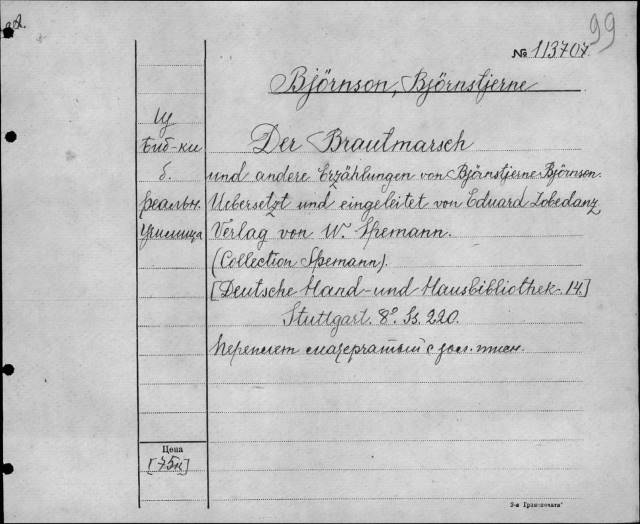 99
№ 113707.
Björnson, Björnstjerne
Из
Биб-ки
б.
реальн.
училища
Der Brautmarsch
und andere Erzählungen von Björnstjerne Björnson.
Uebersetzt und eingeleitet von Eduard Lobedanz
Verlag von W. Spemann.
(Collection Spemann).
[Deutsche Hand- und Hausbibliothek. 14.]
Stuttgart. 8º. Ss. 220.
Переплет с зол. тисн.
Цена
[75к]